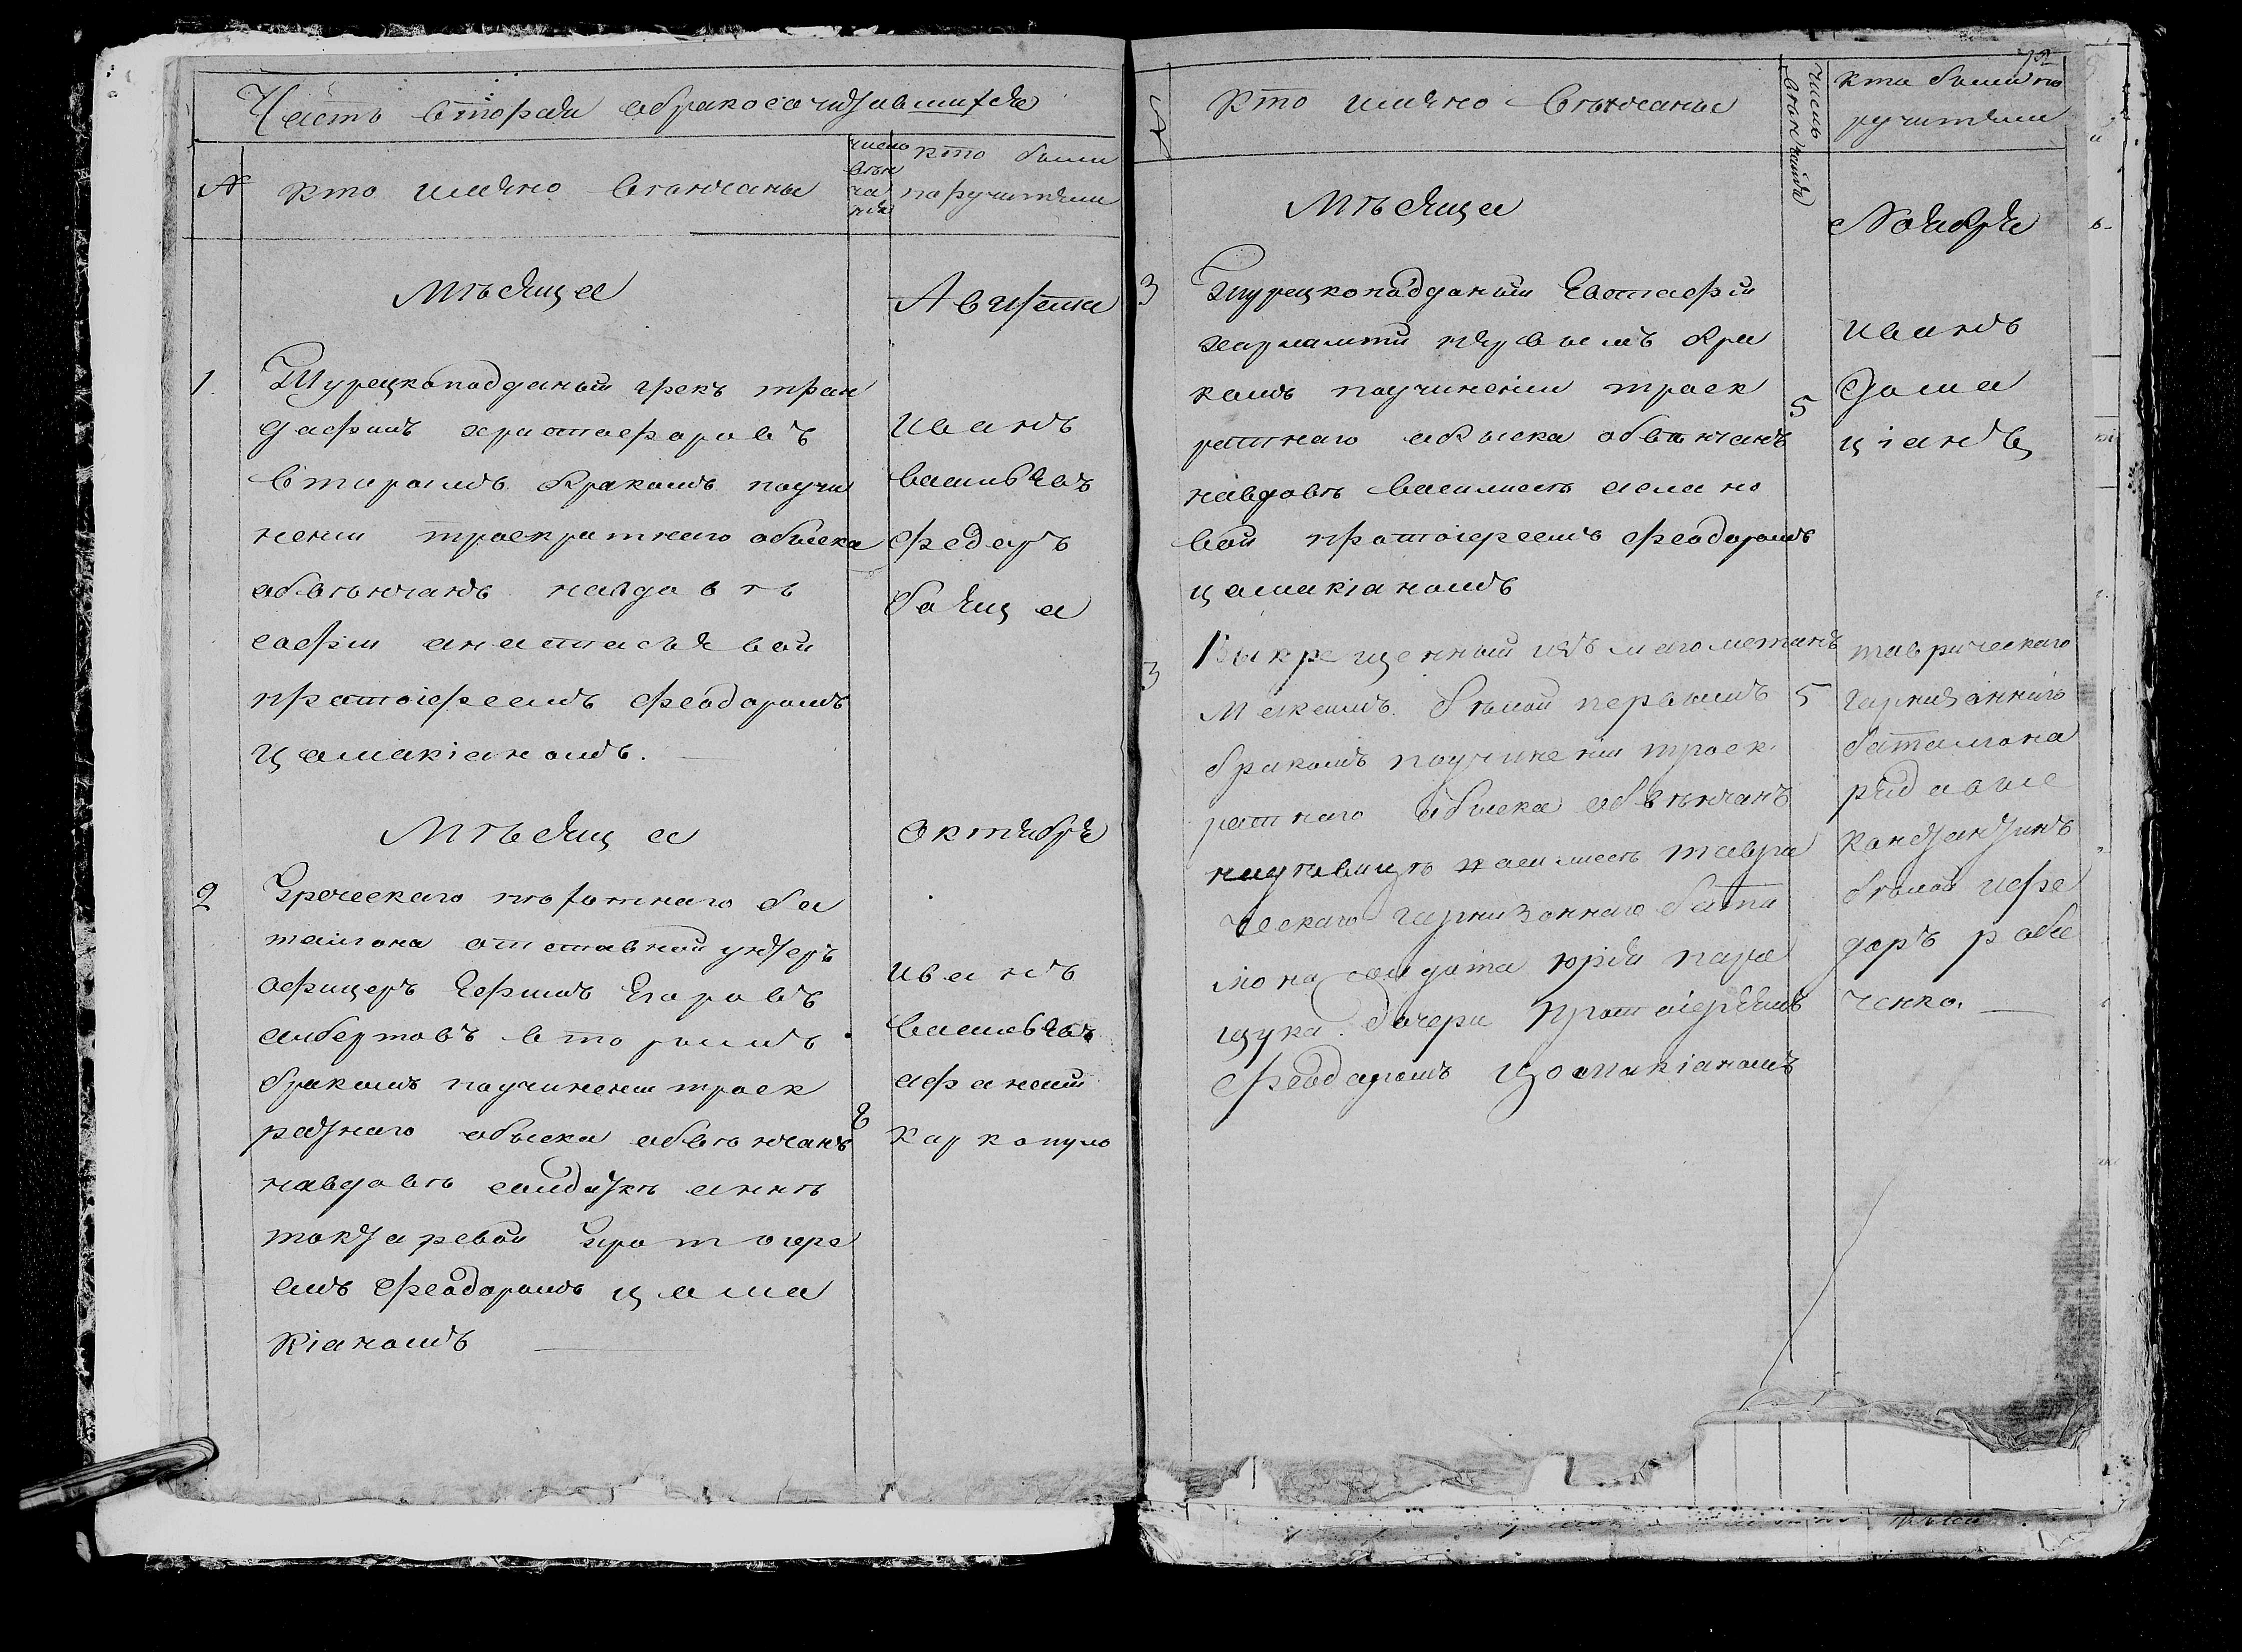 Часть вторая обракосачитавшихся
№
кто имяно венчаны
число
вен
ча
ния
кто были
паручители
Мѣсяца
Августа
1.
Турецкоподданый грекъ тран
дафилъ христофоровъ
вторымъ бракомъ поучи
нении троекратнаго обыска
обвѣнчанъ навдовѣ
софіи анастасьевой
протоіереемъ феодоромъ
цамакіаномъ.
иванъ
васильевъ
федоръ
Мѣсяца
октября
2
Греческаго пѣхотнаго ба
талиона отставной унтеръ
офицеръ Ефимъ Егоровъ
албертовъ вторымъ
бракомъ поучинении троек
ратнаго обыска обвѣнчанъ
8
навдовѣ солдаткѣ аннѣ
токтаревой Протоиере
емъ феодоромъ цама
кіаномъ
иванъ
васильевъ
афанасий
каркопуло
72
№
кто имяно вѣнчаны
число
венчания
кто были по
ручители
Мѣсяца
Ноября
3
Турецкоподданый Евстафій
харлампи первымъ бра
комъ поучинении троек
ратнаго обыска обвѣнчанъ
5
навдовѣ василисѣ асла но
вой протоіереемъ феодоромъ
цамакіаномъ
иванъ
дома
ціанъ
3
Выкрещенный изъ магометанъ
Максимъ бѣлой первымъ
5
бракомъ поучинении троек
ратнаго обыска обвѣнчанъ
надѣвицѣ василисѣ таври
ческаго гарнизоннаго бата
лиона солдата юрия пара
щука дочери протоіереемъ
феодоромъ цамакіаномъ
таврическаго
гарнизоннаго
баталиона
рядавые
константинъ
бѣлой ифе
доръ рабе
ченко.